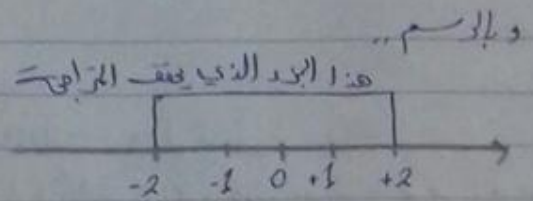 و بالرسم ..
هذا الجزء الذي يحقق المتراجحة
-2 -1 0 +1 +2